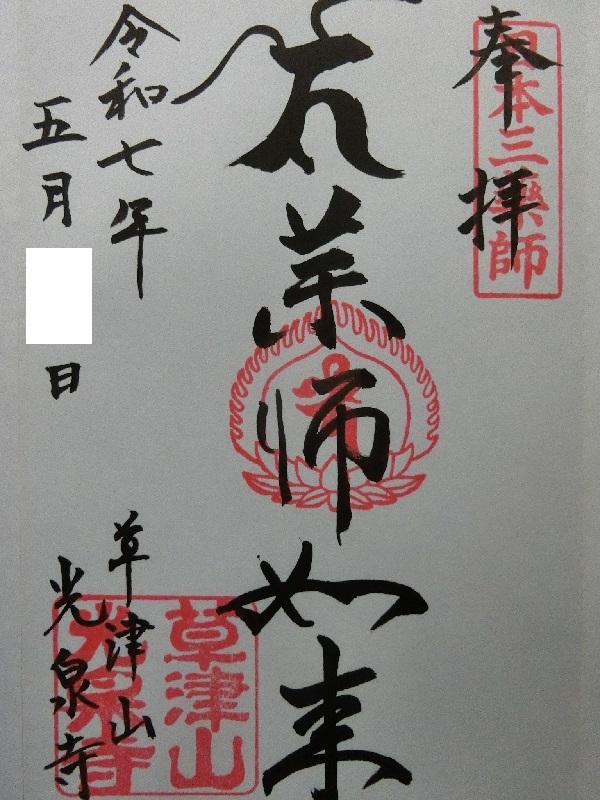 奉拝
日本三薬師
薬師如来
令和七年
五月
日
草津山
光泉寺
草津山
光泉寺